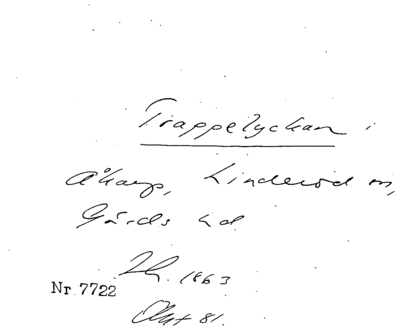 Trappelyckan i
Åkarp, Linderöd sn,
Gärds hd.
1863
Nr 7722
Okt 81.